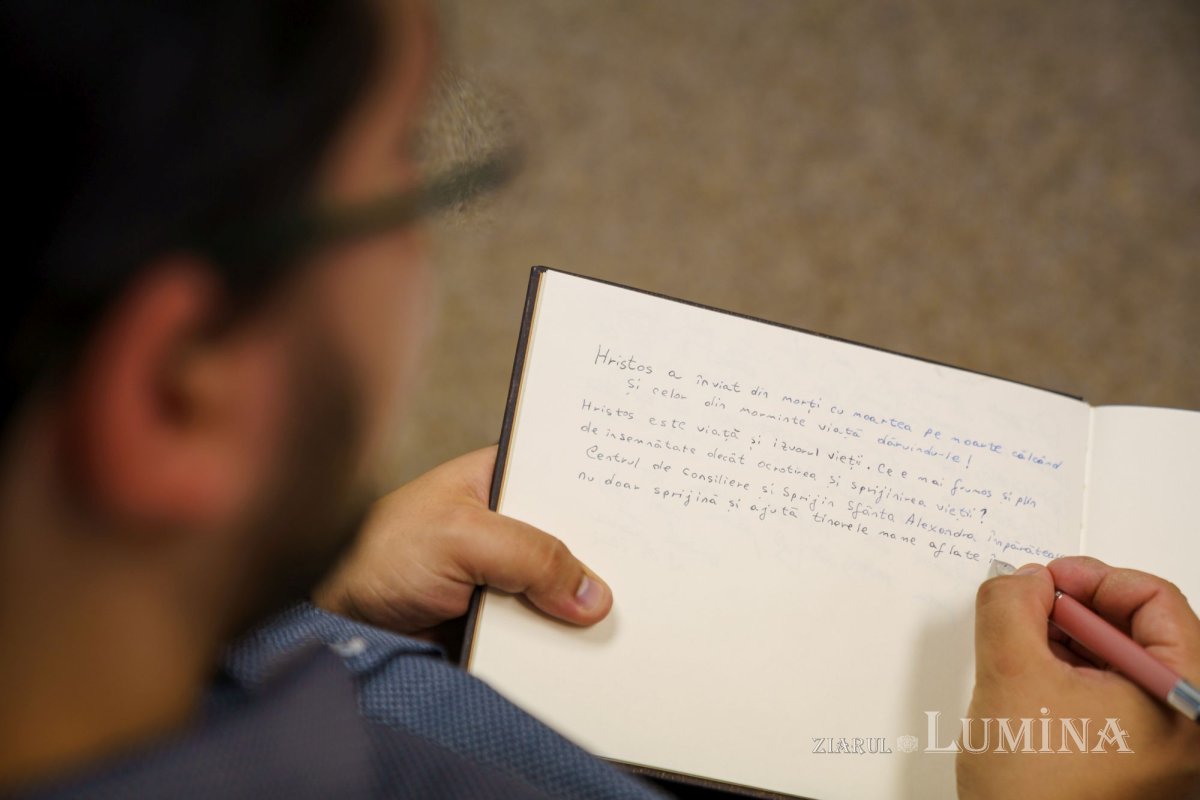 Hristos a înviat din morți cu moartea pe moarte călcând
Și celor din morminte viață dăruindu-le!
Hristos este viață și izvorul vieții. Ce e mai frumos și plin
de însemnătate decât ocrotirea și sprijinirea vieții?
Centrul de consiliere și sprijin Sfânta Alexandra Împărăteasa
nu doar sprijină și ajută tinerele mame aflate în
ZIARUL LUMINA